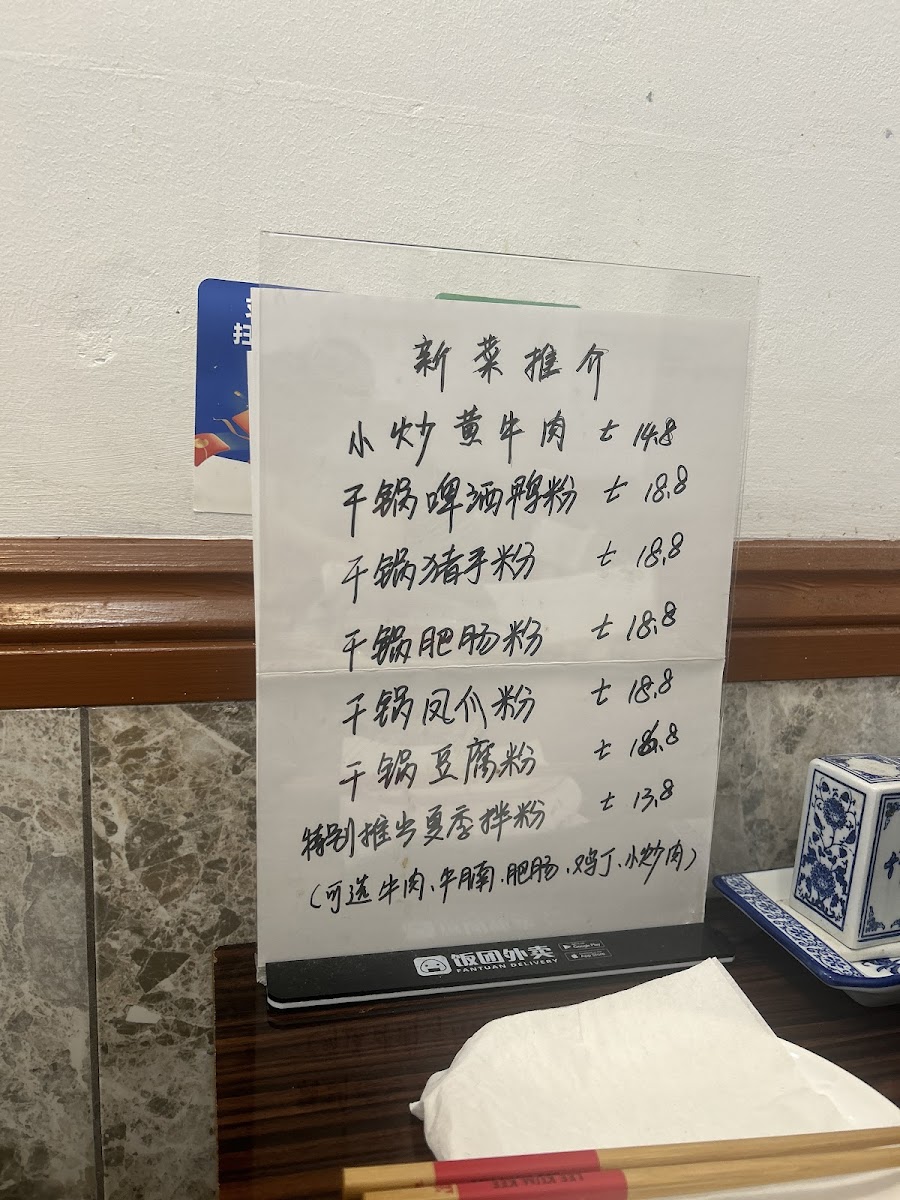 新菜推介
小炒黄牛肉 £ 14.8
干锅啤酒鸭粉 £ 18.8
干锅猪手粉 £ 18.8
干锅肥肠粉 £ 18.8
干锅凤爪粉 £ 18.8
干锅豆腐粉 £ 16.8
特别推出夏季拌粉 £ 13.8
(可选牛肉、牛腩、肥肠、鸡丁、小炒肉)
饭团外卖
FANTUAN DELIVERY
Google Play
App Store
LEE KUM KEE